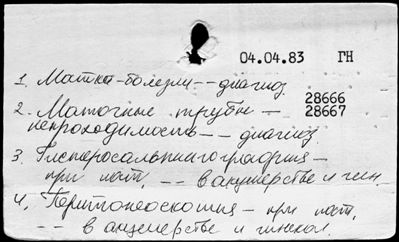 04.04.83 ГН
1. Матки-болезни -- диагноз
28666
2. Маточные трубы --
28667
непроходимость -- диагноз.
3. Гистеросальпингография --
при пат. -- в акушерстве и гин.
4. Перитонеоскопия -- при пат.
-- в акушерстве и гинекол.